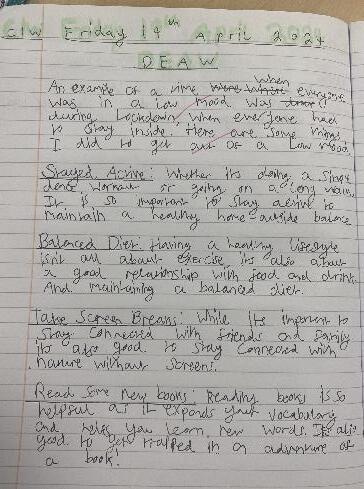 C/W Friday 19th April 2024
DEAW
When
An example of a time were where everyone
was in a low mood was
during Lockdown, when everyone had
to stay inside. Here are some things
I did to get out of a low mood
Stayed Active: Whether its doing a simple
dence, workout or going on a long walk.
It is so important to stay active to
maintain a healthy home outside balance
Balanced Diet. Having a healthy lifestyle
isnt all about exercise, its also about
a good relationship with food and drink.
And maintaining a balanced diet.
Take Screen Breaks: While its important to
stay connected with friends and family
its also good to stay connected with
nature without screens.
Read some new books: Reading books is so
helpful as it expands your vocabulary
and helps you learn new words. Its also
good to get trapped in an adventure of
a book!